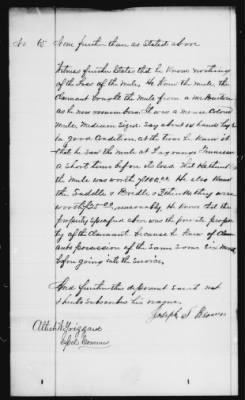 No 15 None further than as stated above
Witness further states that he knows nothing
of the loss of the mule, He knew the mule, the
Claimant bought the mule from a Mr
as he now remembers. It was a mouse Colored
mule, Medium sized say about 14 hands high
in good Condition, at the time he knew it
that he saw the mule at Lagrange Tennessee
a short time before she lost. That he thinks
the mule was worth $ He also knew
the Saddle & Bridle & thinks they were
worth $ reasonably. He knows that the
property specified above was the private proper-
ty of the Claimant because he knew of Claim-
ants possession of the same some six months
before going into the service.
And further this deponent saith not
& hereto subscribes his name.
Joseph S.
Attest